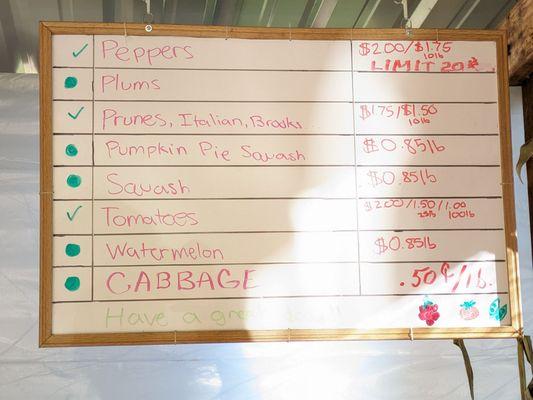 ✓ Peppers $2.00/$1.75
10lb
LIMIT 20#
Plums
✓ Prunes, Italian, Brooks $1.75/$1.50
10lb
Pumpkin Pie Squash $0.85lb
Squash $0.85lb
✓ Tomatoes $2.00/1.50/1.00
25lb 100lb
Watermelon $0.85lb
CABBAGE .50¢/lb.
Have a great